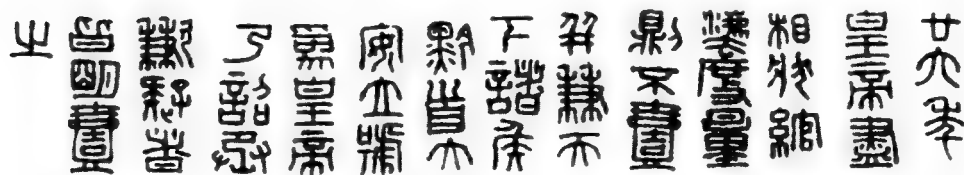 廿六年
皇帝盡
相狀綰
灋度量
則不壹
并兼天
下諸侯
黔首大
安立號
為皇帝
乃詔丞
歉疑者
皆明壹
之